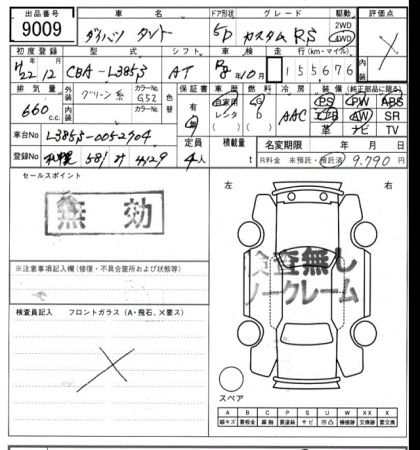 出品番号 車名 ドア形状 グレード 駆動 評価点
9009 ダイハツ タント 5D カスタムRS 2WD 4WD ×
初度登録 型式 シフト 車検 走行(km・マイル)
H22/12 CBA-L385S AT R8年10月 155676
排気量 外装 グリーン系 カラーNo. G52 色替 保証書 車歴 燃料 冷房 装備(純正部品に限る)
660 c.c. 内装 カラーNo. 有 自家用 レンタ G AAC PS PW ABS
エアB AW SR
革 ナビ TV
車台No L385S-0052904 定員 積載量 名変期限 年 月 日
登録No 札幌 581 す 4129 4人 t R料金 未預託・預託済 9,790 円
セールスポイント 左 右
無効
検査無し
ノークレーム
※注意事項記入欄(修復・不具合箇所および状態等)
検査員記入 フロントガラス(A・飛石、X要ス)
×
スペア
A B C P S U W XX X
線キズ 要板金 腐蝕 要塗装 サビ 凹凸 補修跡 交換跡 要交換